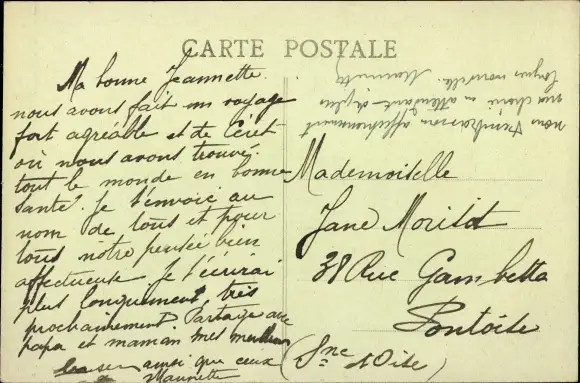 CARTE POSTALE
Ma bonne Jeannette.
nous avons fait un voyage
fort agréable et de Céret
où nous avons trouvé
tout le monde en bonne
santé. Je t'envoie au
nom de tous et pour
tous notre pensée bien
affectueuse. Je t'écrirai
plus longuement très
prochainement. Partage avec
papa et maman mes meilleurs
baisers ainsi que ceux
Maurette
nous t'embrassons affectueusement
ma chérie en attendant de plus
longues nouvelles. Maurette
Mademoiselle
Jane Morisot
38 Rue Gambetta
Pontoise
(Sne & Oise)